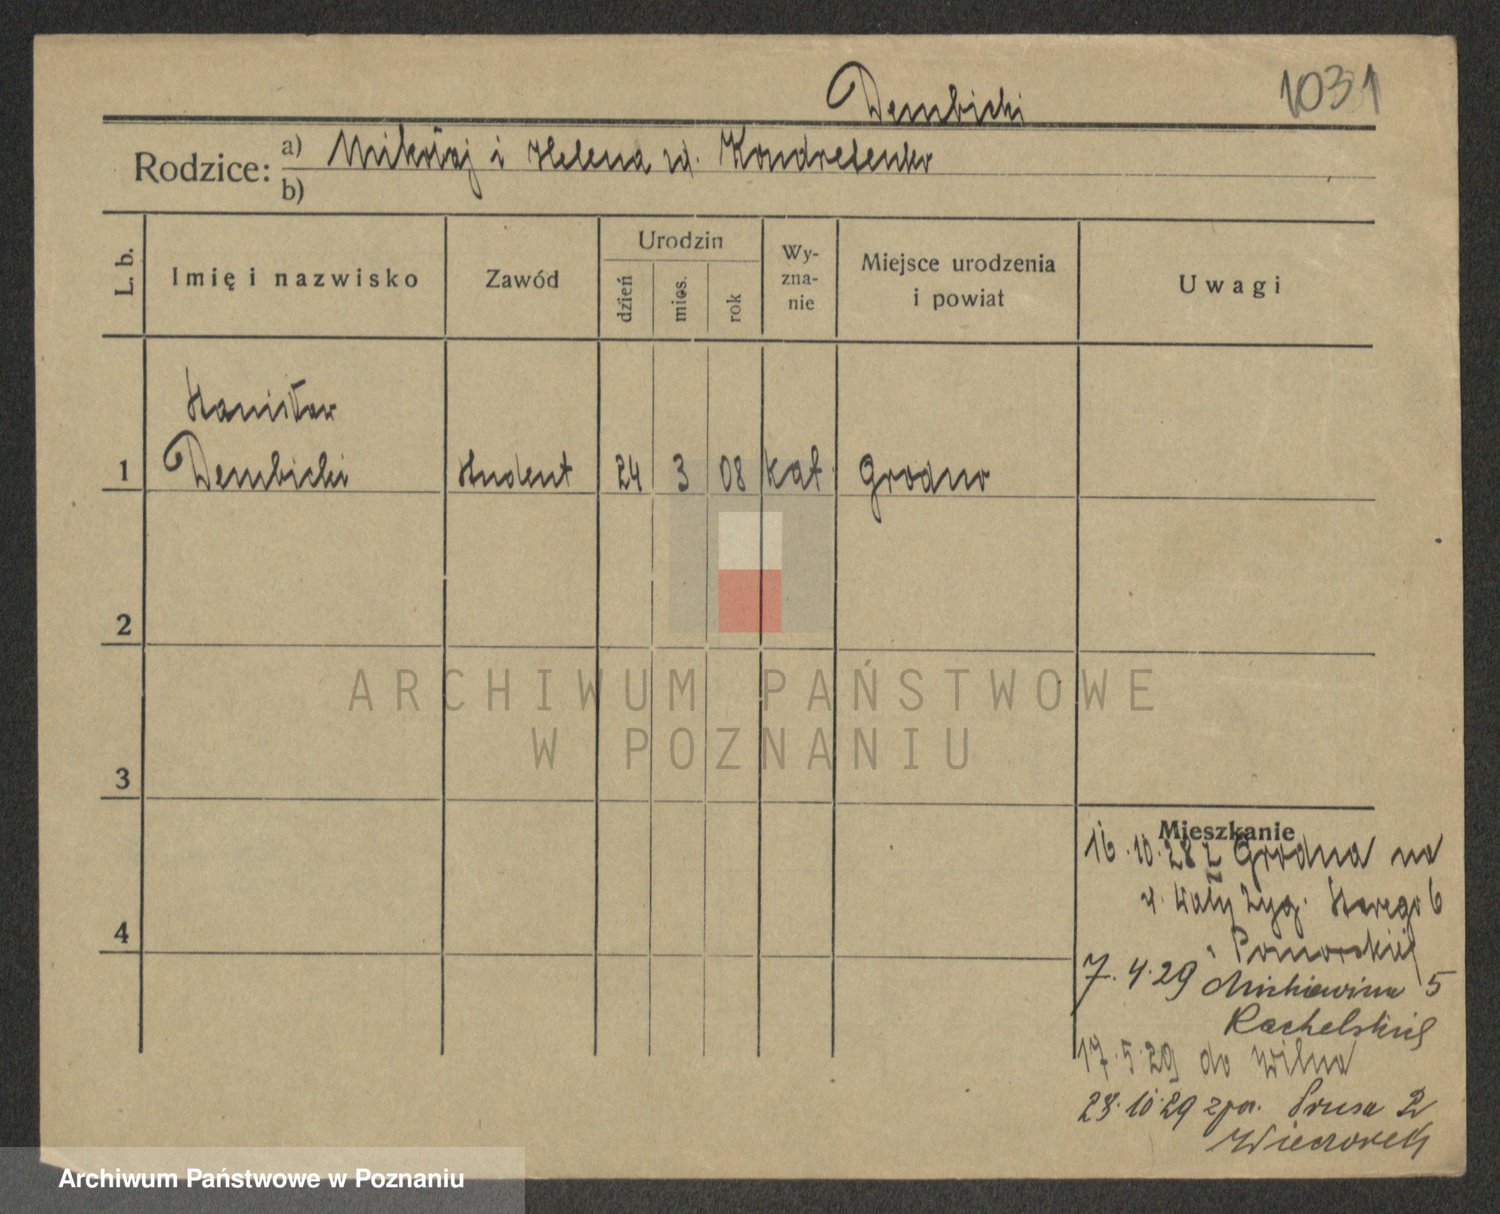 1031
Dembicki
Rodzice: a) Mikołaj i Helena ur. Kondratenko
b)
L. b.
Imię i nazwisko
Zawód
Urodzin
dzień
mies.
rok
Wy-
zna-
nie
Miejsce urodzenia
i powiat
Uwagi
Stanisław
1 Dembicki student 24 3 08 kat. Grodno
2
3
4
Mieszkanie
16.10.28 z Grodna na
Zyg. Starego 6
Pomorskiej
7.4.29 Mickiewicza 5
Rachelskiej
17.5.29 do Wilna
23.10.29 Prusa 2
Wieczorek
ARCHIWUM PAŃSTWOWE
W POZNANIU
Archiwum Państwowe w Poznaniu